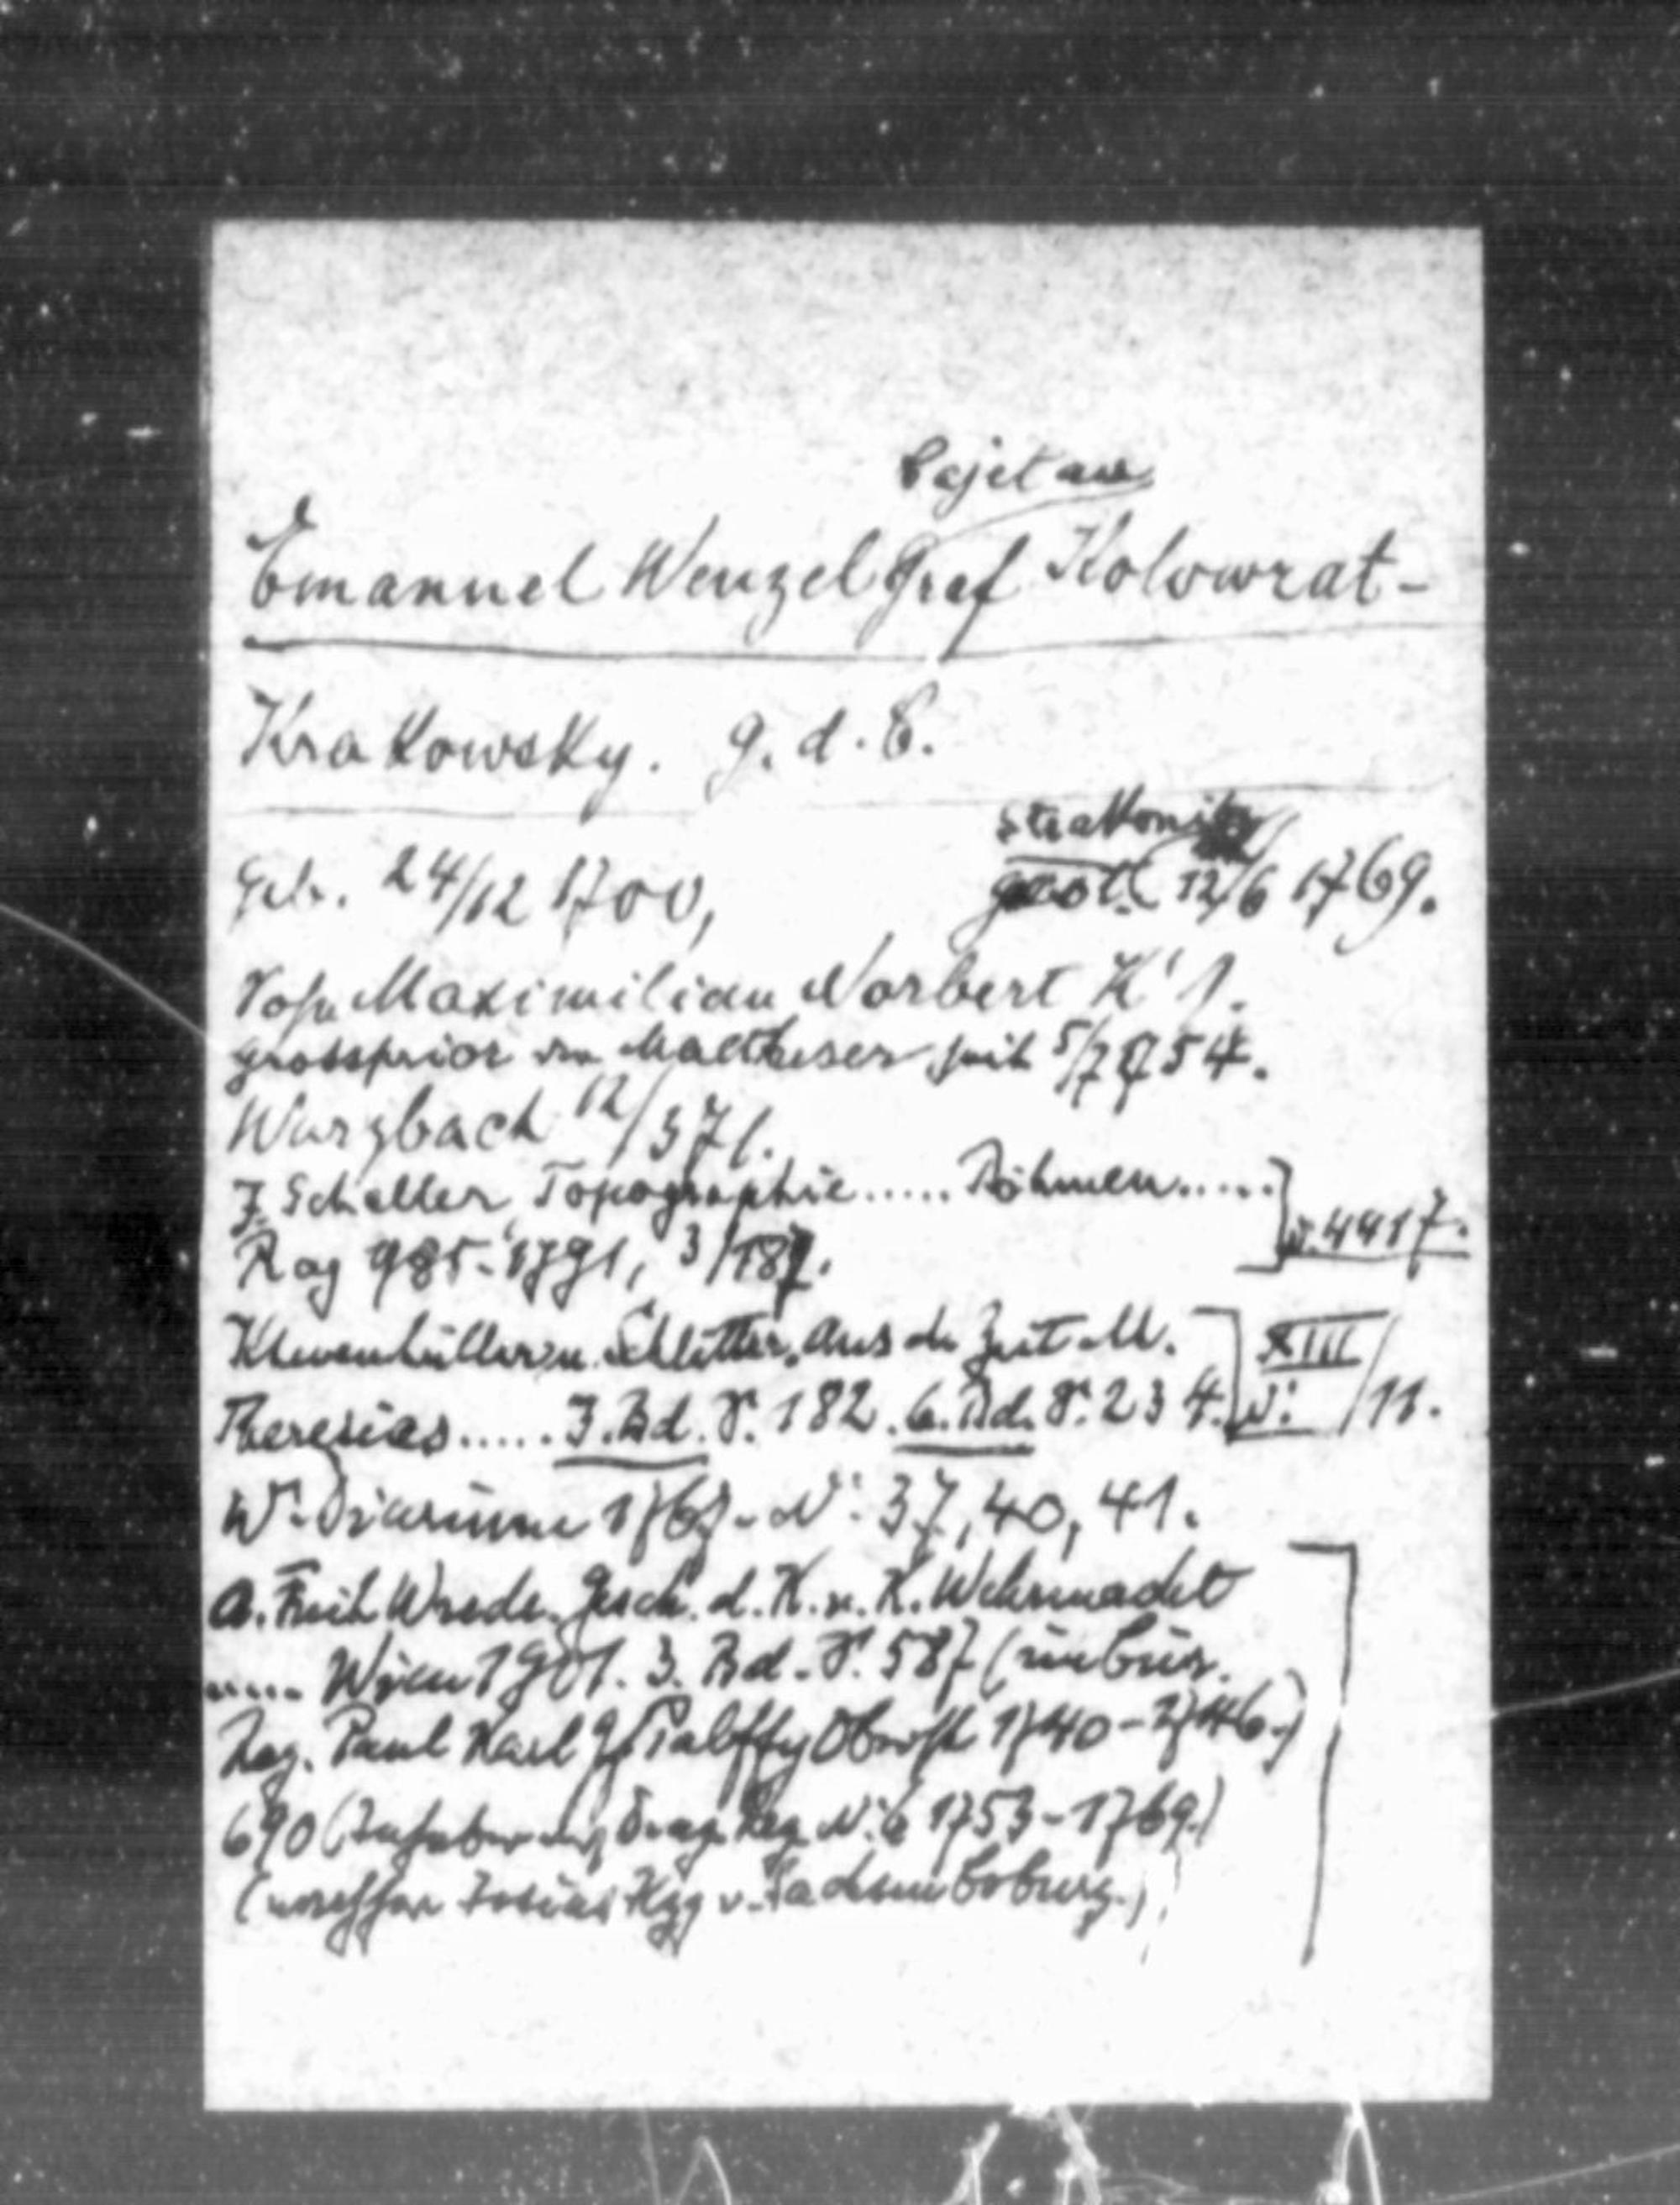 Cajetan
Emanuel Wenzel Graf Kolowrat-
Krakowsky. G. d. C.
Strakonitz
Geb. 24/12 1700, gest. 12/6 1769.
Maximilian Norbert K' 1.
Grossprior Maltheser seit 5/7 1754.
Wurzbach 12/371.
J. Schaller, Topographie..... Böhmen.....
Rag 985-1791, 3/187. N. 4417.
Khevenhüller u. Schlitter, Aus der Zeit M. XIII
Theresias..... 3. Bd. S. 182. 6. Bd. S. 234. N: /11.
W. Diarium 1769 - N: 37, 40, 41.
A. Freih Wrede, Gesch. d. K. u. K. Wehrmacht
..... Wien 1901. 3. Bd. S. 587 (
Reg. Paul Karl Gf Palffy Oberst 1740-1746.)
690 (Inhaber Drag. Reg. N: 6 1753-1769.)
( Josias Hzg v. Sachsen Coburg.)